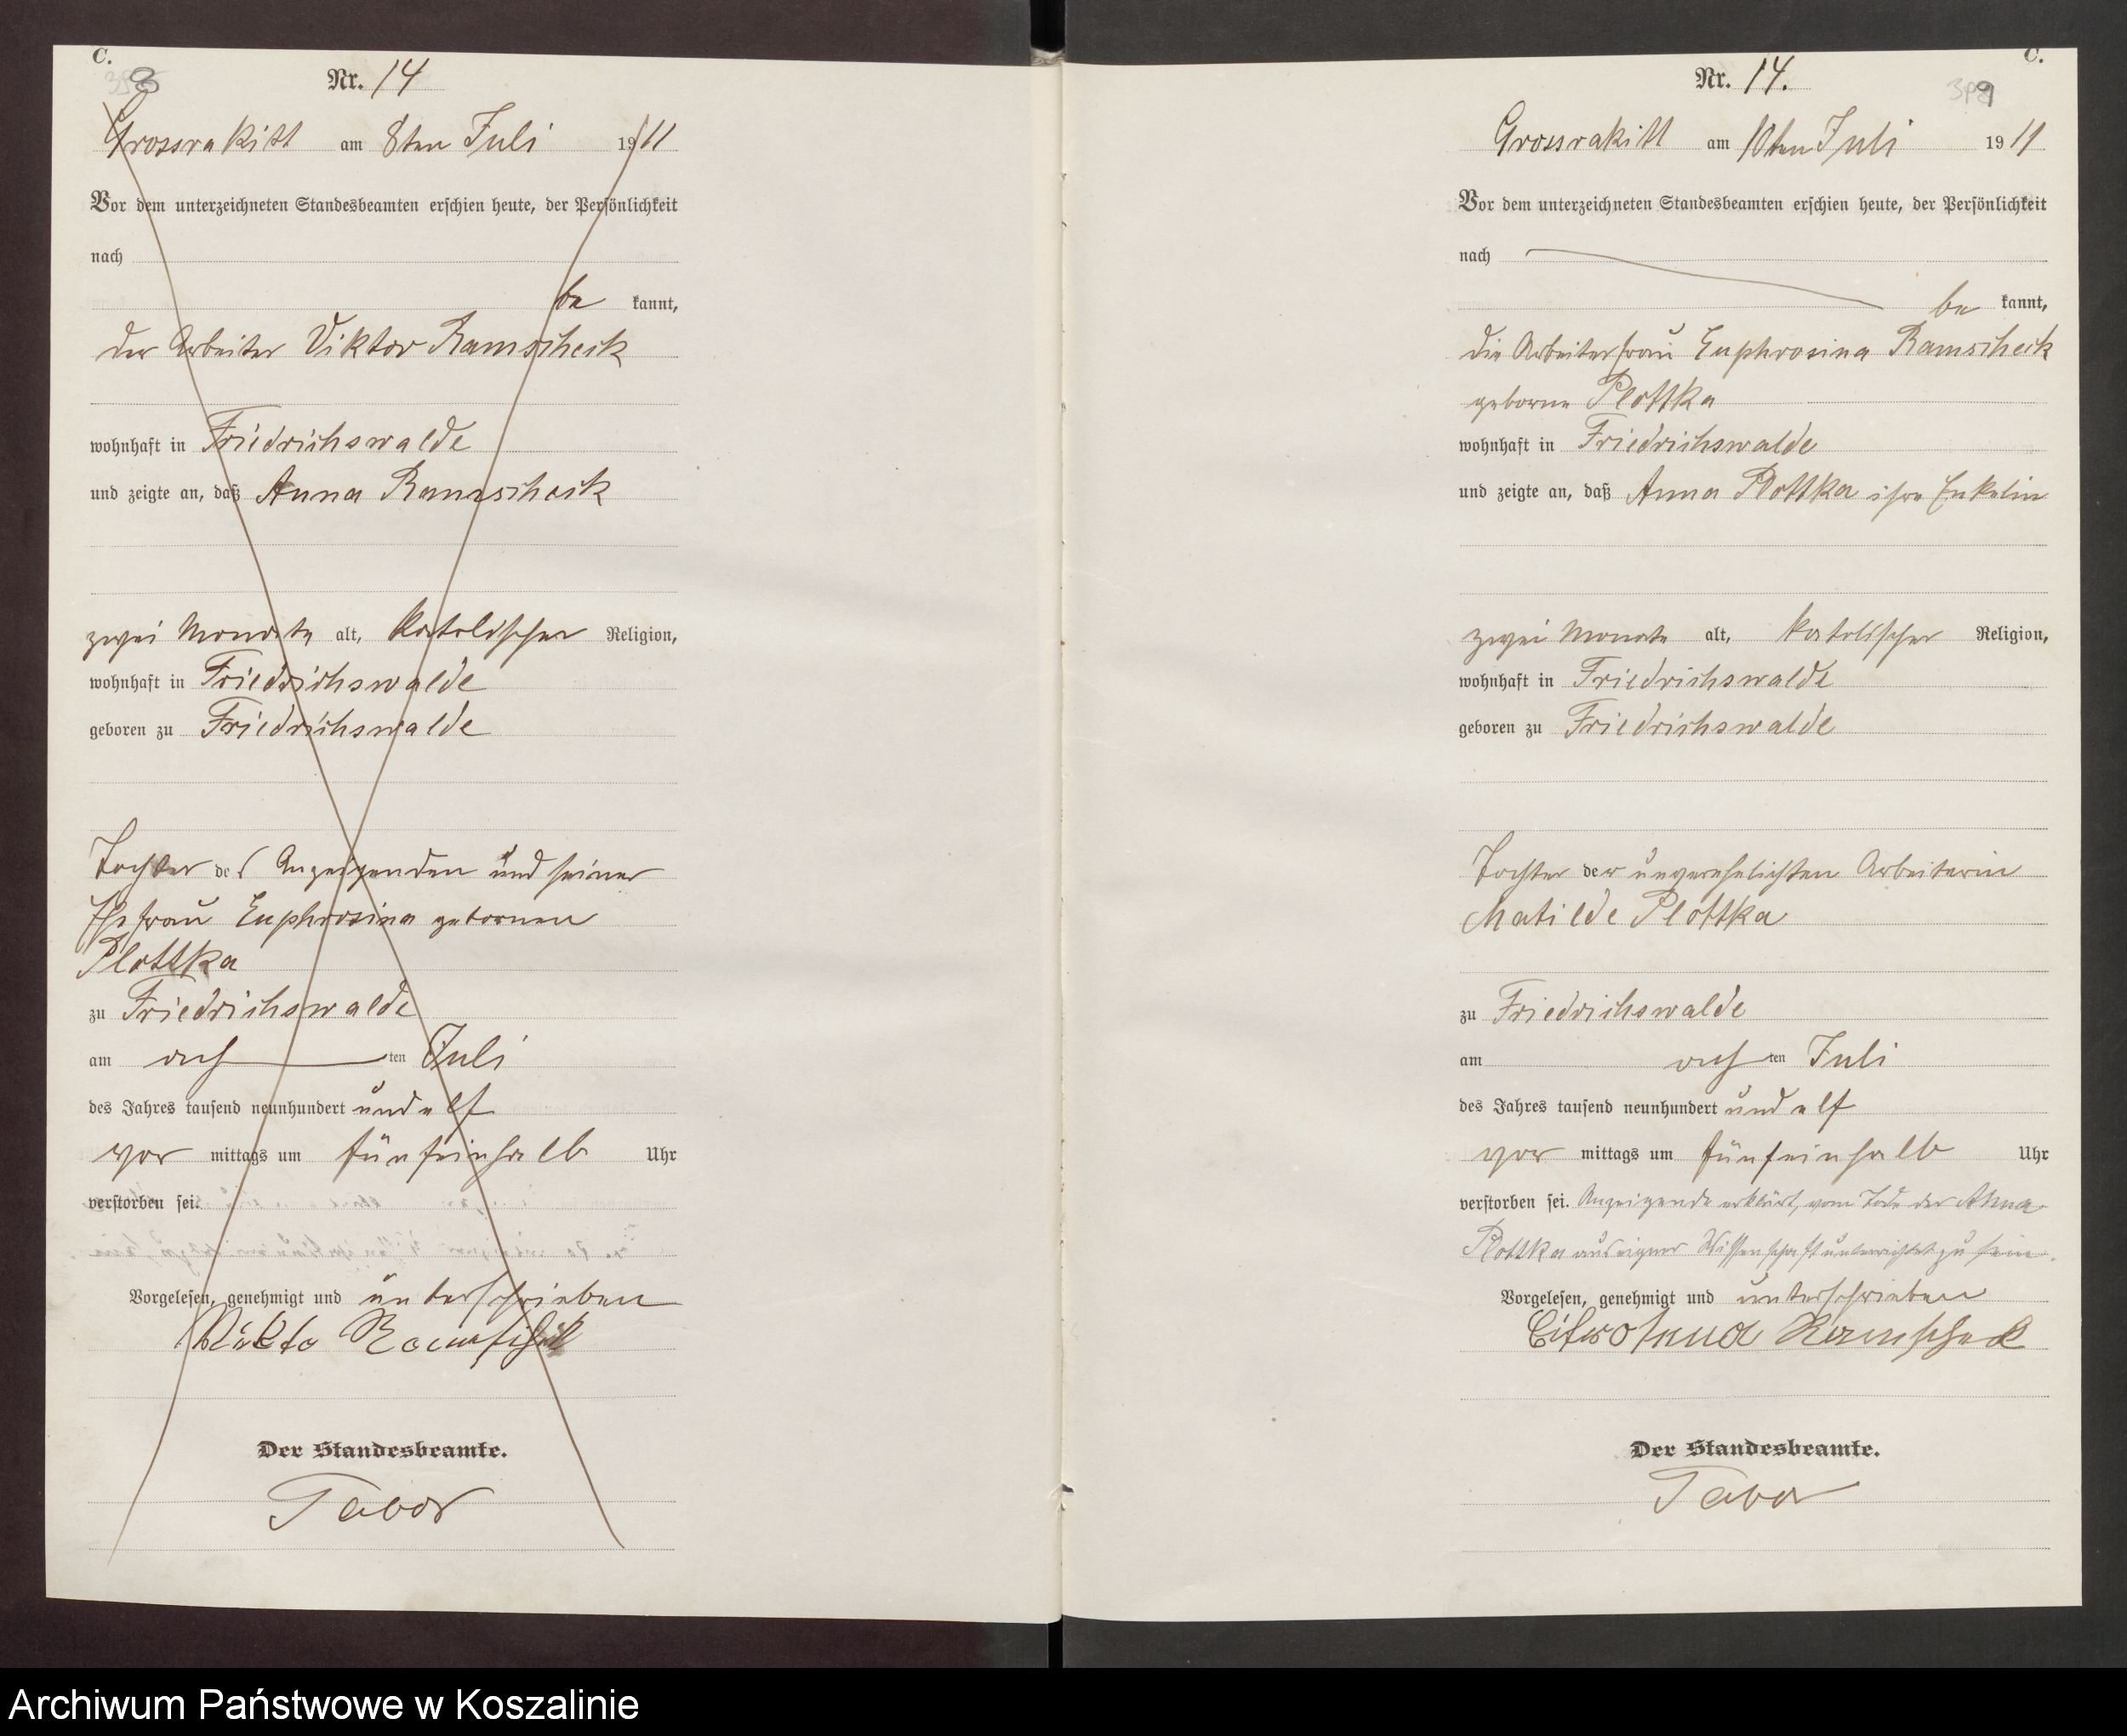 C.
8
Nr. 14
Grossrakitt am 8ten Juli 1911
Vor dem unterzeichneten Standesbeamten erschien heute, der Persönlichkeit
nach
be kannt,
der Arbeiter Viktor Ramscheck
wohnhaft in Friedrichswalde
und zeigte an, daß Anna Ramscheck
zwei Monate alt, katolischer Religion,
wohnhaft in Friedrichswalde
geboren zu Friedrichswalde
Tochter des Anzeigenden und seiner
Ehefrau Euphrosina gebornen
Plottka
zu Friedrichswalde
am ach ten Juli
des Jahres tausend neunhundert und elf
vor mittags um fünfeinhalb Uhr
verstorben sei.
Vorgelesen, genehmigt und unterschrieben
Der Standesbeamte.
Tabor
C.
9
Nr. 14.
Grossrakitt am 10ten Juli 1911
Vor dem unterzeichneten Standesbeamten erschien heute, der Persönlichkeit
nach
be kannt,
die Arbeiterfrau Euphrosina Ramscheck
geborne Plottka
wohnhaft in Friedrichswalde
und zeigte an, daß Anna Plottka ihre Enkelin
zwei Monate alt, katolischer Religion,
wohnhaft in Friedrichswalde
geboren zu Friedrichswalde
Tochter der unverehelichten Arbeiterin
Matilde Plottka
zu Friedrichswalde
am ach ten Juli
des Jahres tausend neunhundert und elf
vor mittags um fünfeinhalb Uhr
verstorben sei. Anzeigende erklärt, vom Tode der Anna
Plottka aus eigner Wissenschaft unterrichtet zu sein.
Vorgelesen, genehmigt und unterschrieben
Ramscheck
Der Standesbeamte.
Tabor
Archiwum Państwowe w Koszalinie